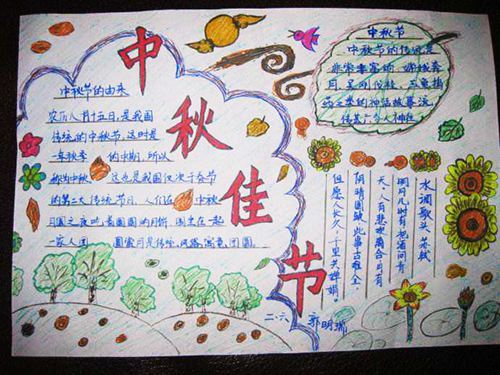 中秋佳节
中秋节的由来
农历八月十五日,是我国
传统的中秋节,这时是
一年秋季 的中期,所以
称为中秋 这也是我国仅次于春节
的第二大传统节日,人们在 中秋
月圆之夜吃着圆圆的月饼,围坐在一起
一家人团 圆赏月是传统,风俗,寓意,团圆。
中秋节
中秋节的传说是
非常丰富的,嫦娥奔
月,吴刚伐桂,玉兔捣
药之类的神话故事流
传甚广
水调歌头 苏轼
明月几时有把酒问青
天,人有悲欢离合月有
阴晴圆缺,此事古难全。
但愿人长久,千里共婵娟。
二·六 郭明瑞